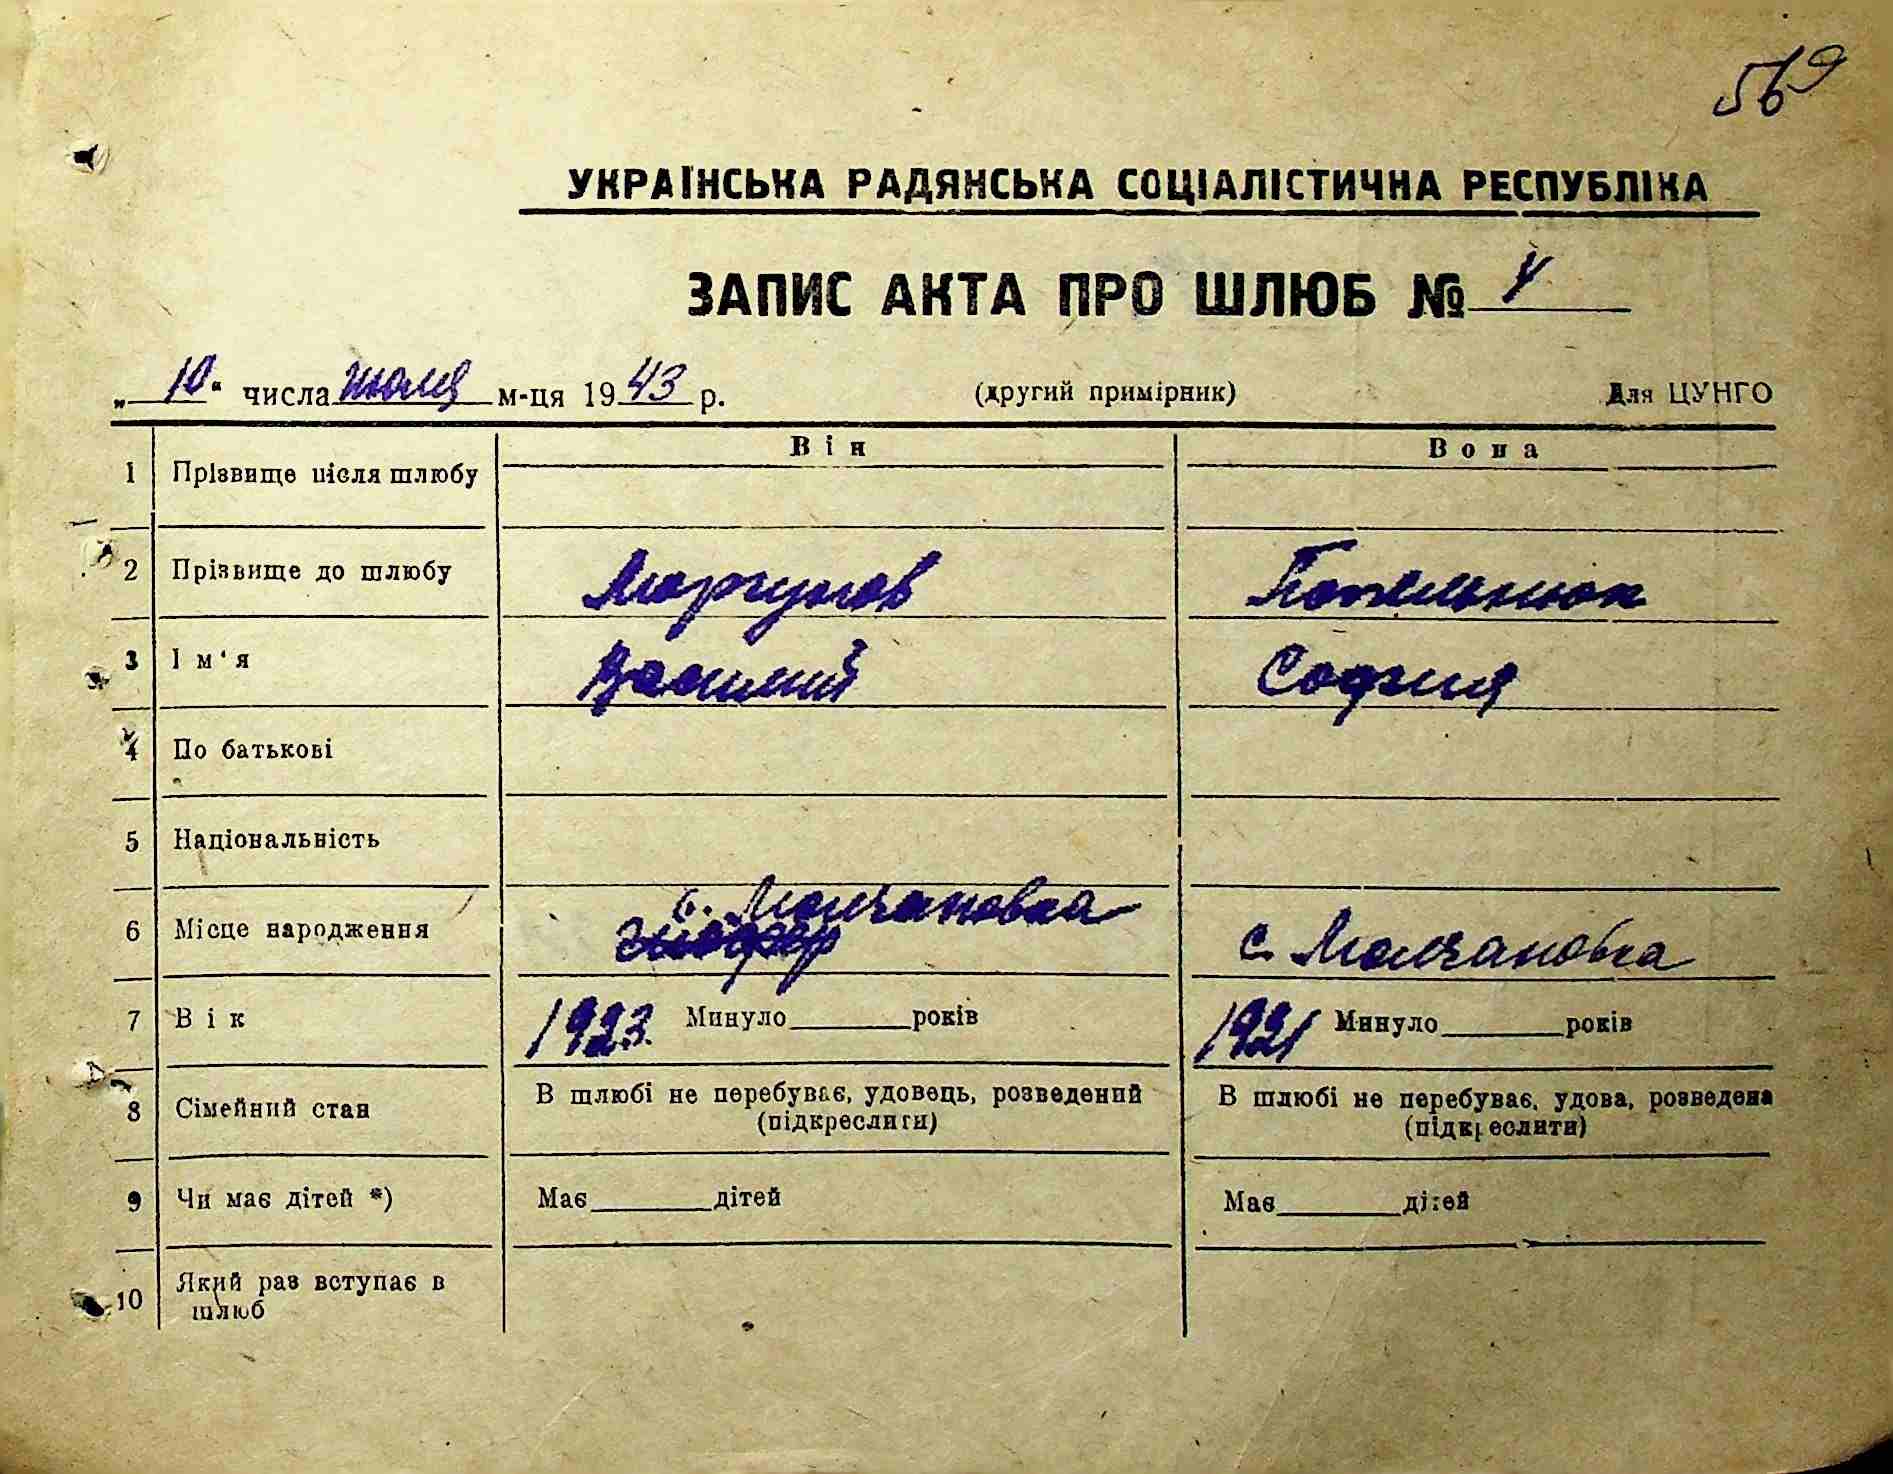 569
УКРАЇНСЬКА РАДЯНСЬКА СОЦІАЛІСТИЧНА РЕСПУБЛІКА
ЗАПИС АКТА ПРО ШЛЮБ №
„10“ числа июля м-ця 1943 р. (другий примірник) Для ЦУНГО
Він Вона
1 Прізвище після шлюбу
2 Прізвище до шлюбу Моргунов
3 Ім'я Василий София
4 По батькові
5 Національність
6 Місце народження с. Молчановка с. Молчановка
7 Вік 1923. Минуло______років 1921 Минуло______років
8 Сімейний стан В шлюбі не перебуває, удовець, розведений (підкреслити) В шлюбі не перебуває, удова, розведена (підкреслити)
9 Чи має дітей *) Має______дітей Має______дітей
10 Який раз вступає в
шлюб